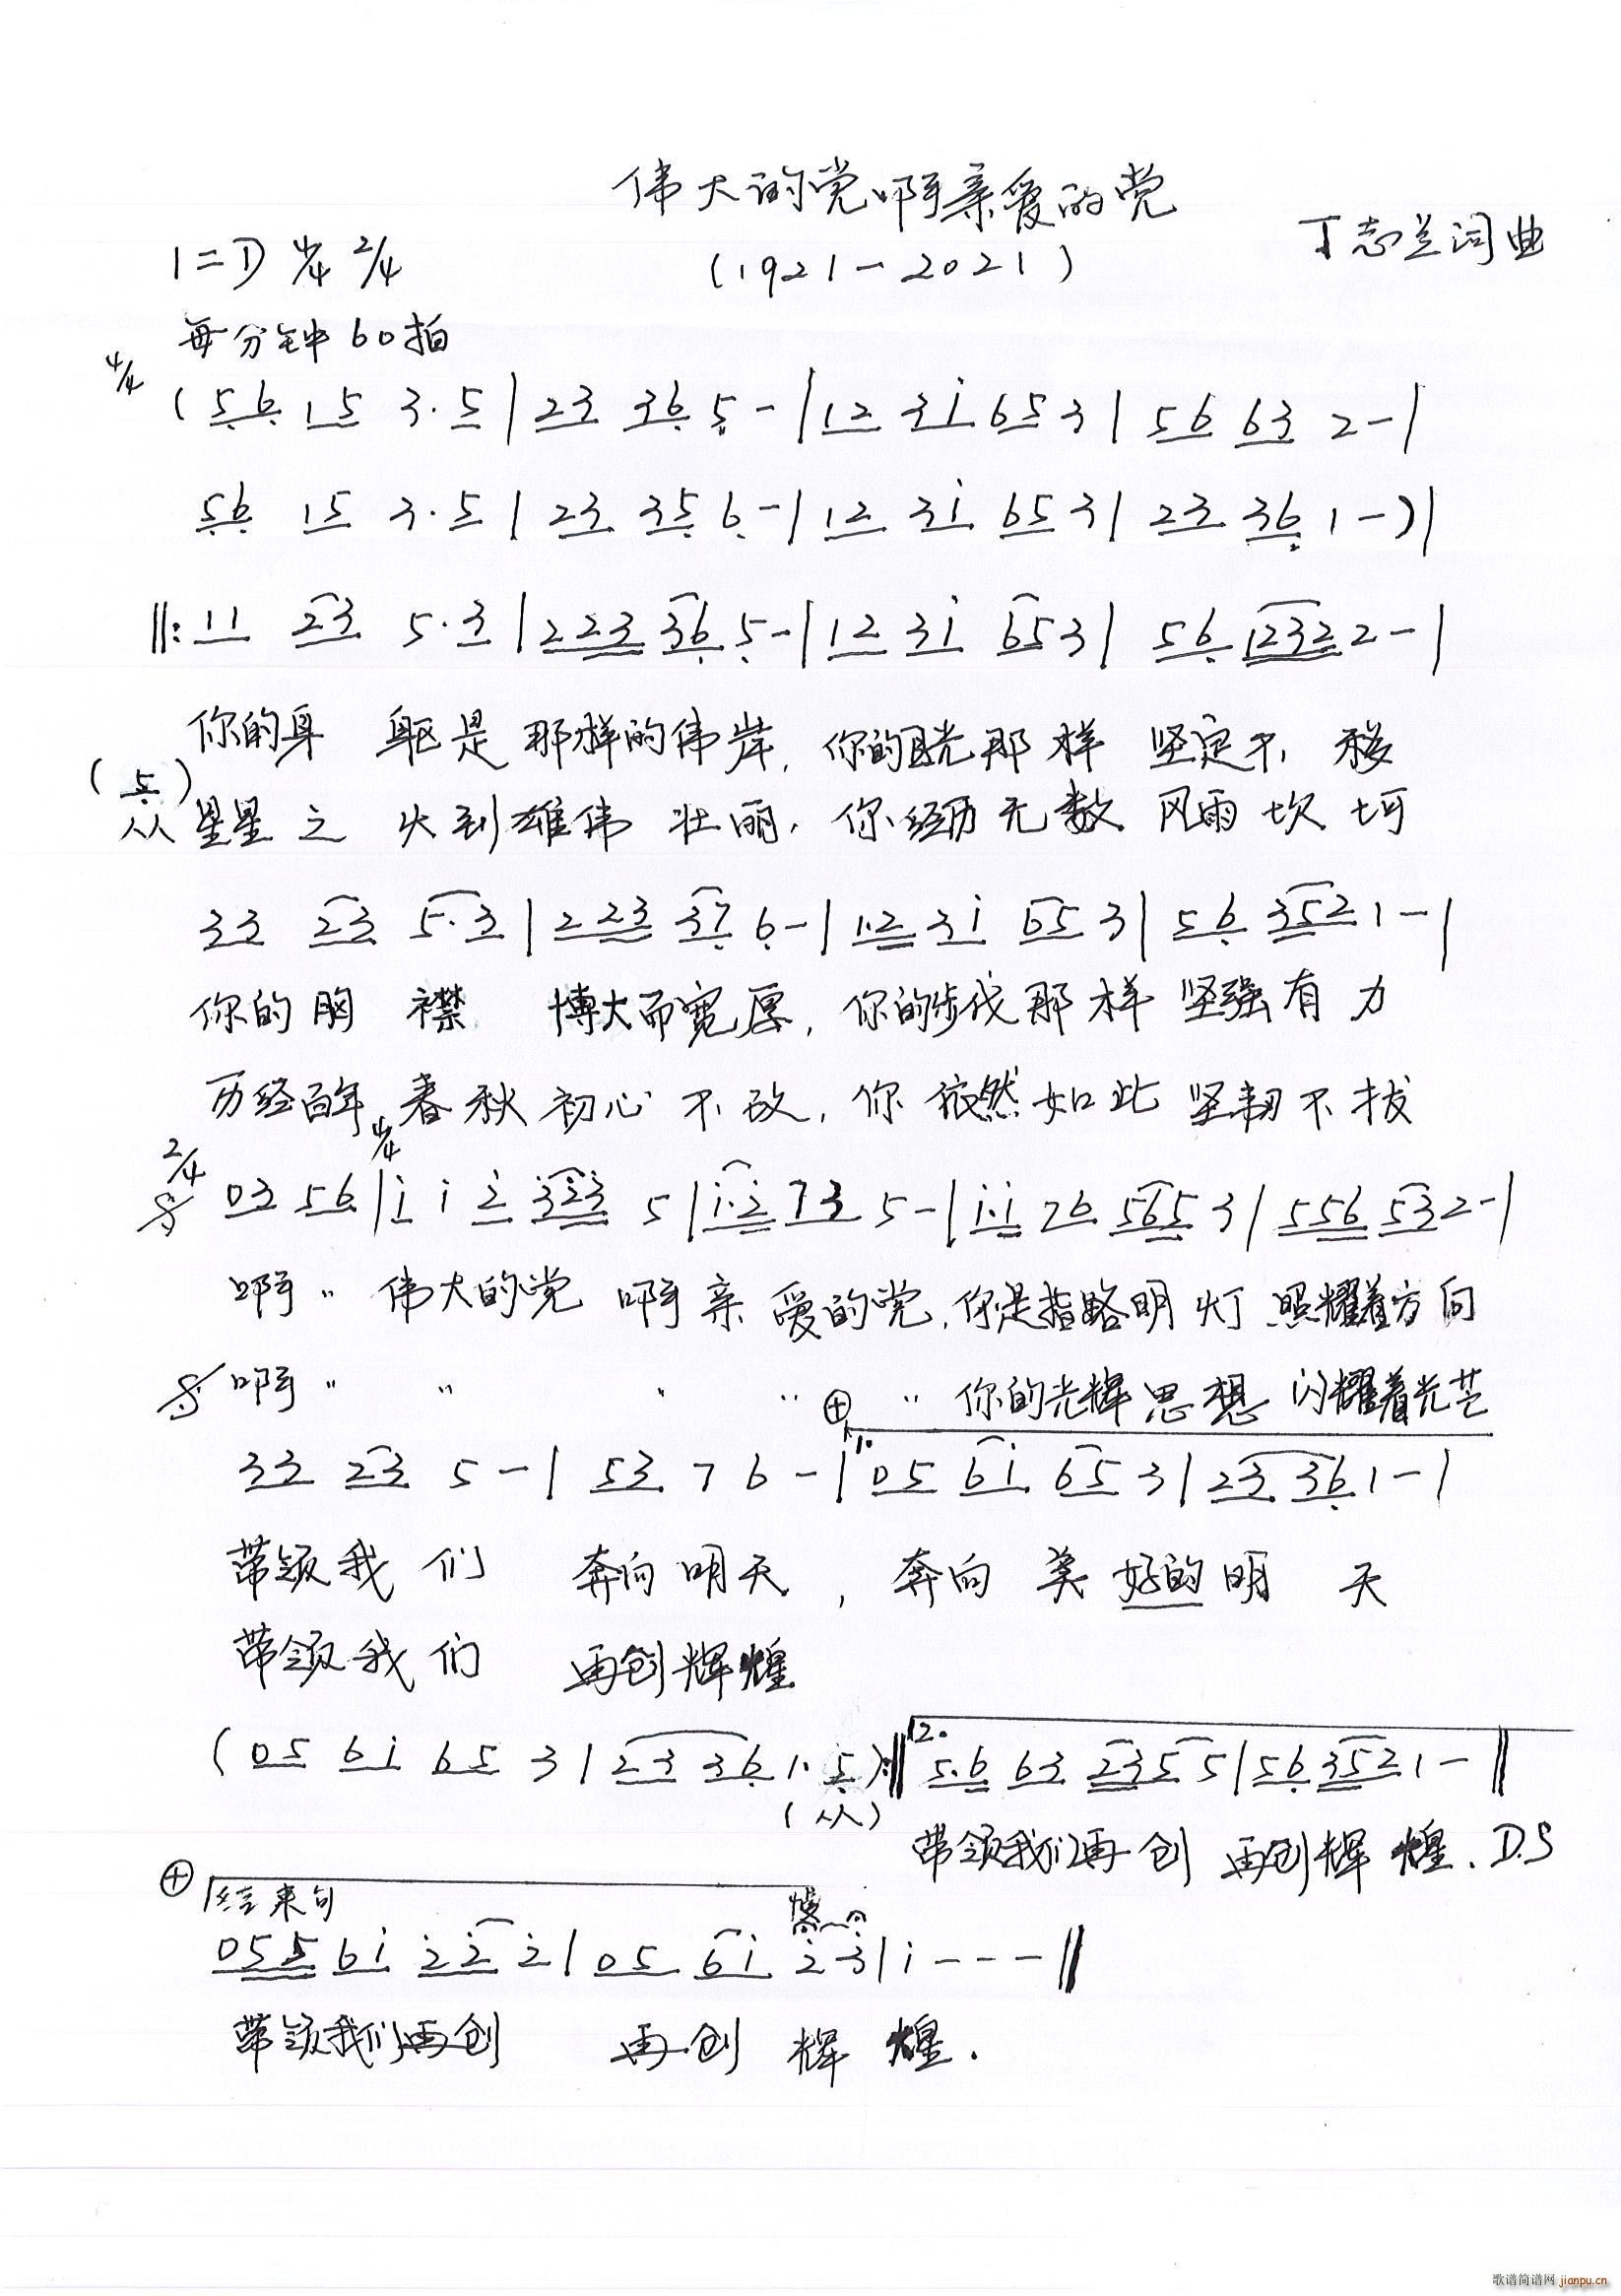 伟大的党啊亲爱的党
丁志兰词曲
1=D 4/4 2/4
(1921-2021)
每分钟60拍
4/4
(5̣6̣ 15 3·5|23 36̣ 5̣-|12 3i 653|56 63 2-|
5̣6̣ 15 3·5|23 35̣ 6̣-|12 3i 653|23 36̣ 1-)|
‖:11 23 5·3|223 36̣ 5̣-|12 3i 653|56̣ 1232 2-|
你的身 躯是那样的伟岸,你的目光那样 坚定不 移
(5̣)
从 星星之 火到雄伟 壮丽,你经历无数 风雨坎坷
33 23 5·3|223 37̣ 6̣-|1·2 3i 653|56̣ 3521-|
你的胸 襟 博大而宽厚,你的步伐那样 坚强有 力
历经百年 春秋初心 不改,你依然如此 坚韧不拔
2/4 4/4
03 56|i i 2̇ 3̇2̇3̇ 5|i·2̇ 73 5-|i·i 76 5653|556 532-|
啊〃 伟大的党 啊亲爱的党,你是指路明灯 照耀着方向
啊〃 〃 〃 〃 〃 你的光辉思想 闪耀着光芒
33 23 5-|53 7 6-|1.05 6i 653|23 36̣ 1-|
带领我们 奔向明天,奔向 美好的明 天
带领我们 再创辉煌
(05 6i 65 3|23 36̣ 1·5̣):‖2.5·6 63 235 5|56̣ 3521-‖
(从)
带领我们再创 再创辉煌. D.S
结束句 慢
055 6i 2̇2̇ 2̇|05 6i 2̇3̇|i---‖
带领我们再创 再创 辉 煌.
歌谱简谱网 jianpu.cn